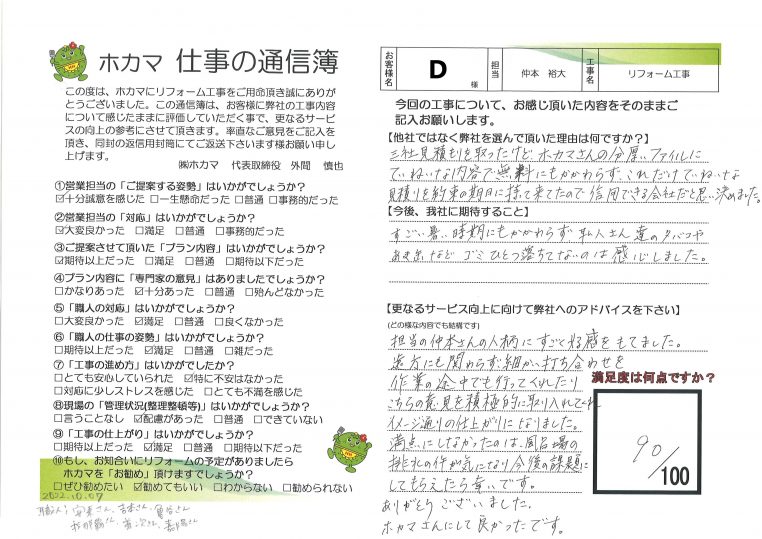 ホカマ 仕事の通信簿
この度は、ホカマにリフォーム工事をご用命頂き誠にありが
とうございました。この通信簿は、お客様に弊社の工事内容
について感じたままに評価していただく事で、更なるサービ
スの向上の参考にさせて頂きます。率直なご意見をご記入を
頂き、同封の返信用封筒にてご返送下さいます様お願い申し
上げます。
㈱ホカマ 代表取締役 外間 慎也
①営業担当の「ご提案する姿勢」はいかがでしょうか?
☑十分誠意を感じた □一生懸命だった □普通 □事務的だった
②営業担当の「対応」はいかがでしょうか?
☑大変良かった □満足 □普通 □事務的だった
③ご提案させて頂いた「プラン内容」はいかがでしょうか?
☑期待以上だった □満足 □普通 □期待以下だった
④プラン内容に「専門家の意見」はありましたでしょうか?
□かなりあった ☑十分あった □普通 □殆んどなかった
⑤「職人の対応」はいかがでしょうか?
□大変良かった ☑満足 □普通 □良くなかった
⑥「職人の仕事の姿勢」はいかがでしょうか?
□期待以上だった ☑満足 □普通 □雑だった
⑦「工事の進め方」はいかがでしたか?
□とても安心していられた ☑特に不安はなかった
□対応に少しストレスを感じた □とても不満を感じた
⑧現場の「管理状況(整理整頓等)」はいかがでしょうか?
□言うことなし ☑配慮があった □普通 □できていない
⑨「工事の仕上がり」はいかがでしょうか?
□期待以上だった ☑満足 □普通 □期待以下だった
⑩もし、お知合いにリフォームの予定がありましたら
ホカマを「お勧め」頂けますでしょうか?
□ぜひ勧めたい ☑勧めてもいい □わからない □勧められない
2022.10.07
職人:安来さん、吉本さん、亀谷さん
お客様名 D 様 担当 仲本 裕大 工事名 リフォーム工事
今回の工事について、お感じ頂いた内容をそのままご
記入お願いします。
【他社ではなく弊社を選んで頂いた理由は何ですか?】
三社見積もりを取ったけど ホカマさんの分厚いファイルに
ていねいな内容で無料にもかかわらず、これだけていねいな
見積りを約束の期日に持って来てたので信用できる会社だと思い決めました。
【今後、我社に期待すること】
すごい暑い時期にもかかわらず 職人さん達のタバコや
空き缶など ゴミひとつ落ちてないのは感心しました。
【更なるサービス向上に向けて弊社へのアドバイスを下さい】
(どの様な内容でも結構です)
担当の仲本さんの人柄にすごく好感をもてました。
遠方にも関わらず細かい打ち合わせを
作業の途中でも行ってくれたり
こちらの意見を積極的に取り入れてくれ
イメージ通りの仕上がりになりました。
満点にしなかったのは、風呂場の
排水の件が気になり今後の課題に
してもらえたら幸いです。
ありがとうございました。
ホカマさんにして良かったです。
満足度は何点ですか?
90/100